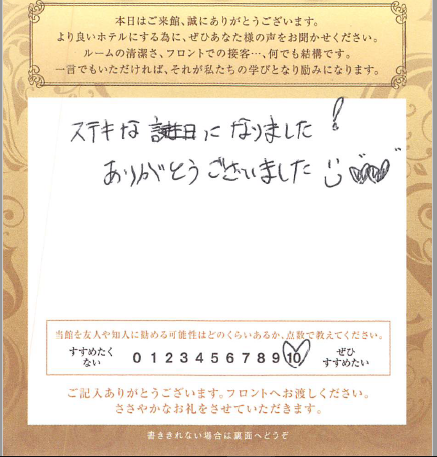 本日はご来館、誠にありがとうございます。
より良いホテルにする為に、ぜひあなた様の声をお聞かせください。
ルームの清潔さ、フロントでの接客…、何でも結構です。
一言でもいただければ、それが私たちの学びとなり励みになります。
ステキな誕生日になりました!
ありがとうございました
当館を友人や知人に勧める可能性はどのくらいあるか、点数で教えてください。
すすめたくない 0 1 2 3 4 5 6 7 8 9 10 ぜひすすめたい
ご記入ありがとうございます。フロントへお渡しください。
ささやかなお礼をさせていただきます。
書ききれない場合は裏面へどうぞ